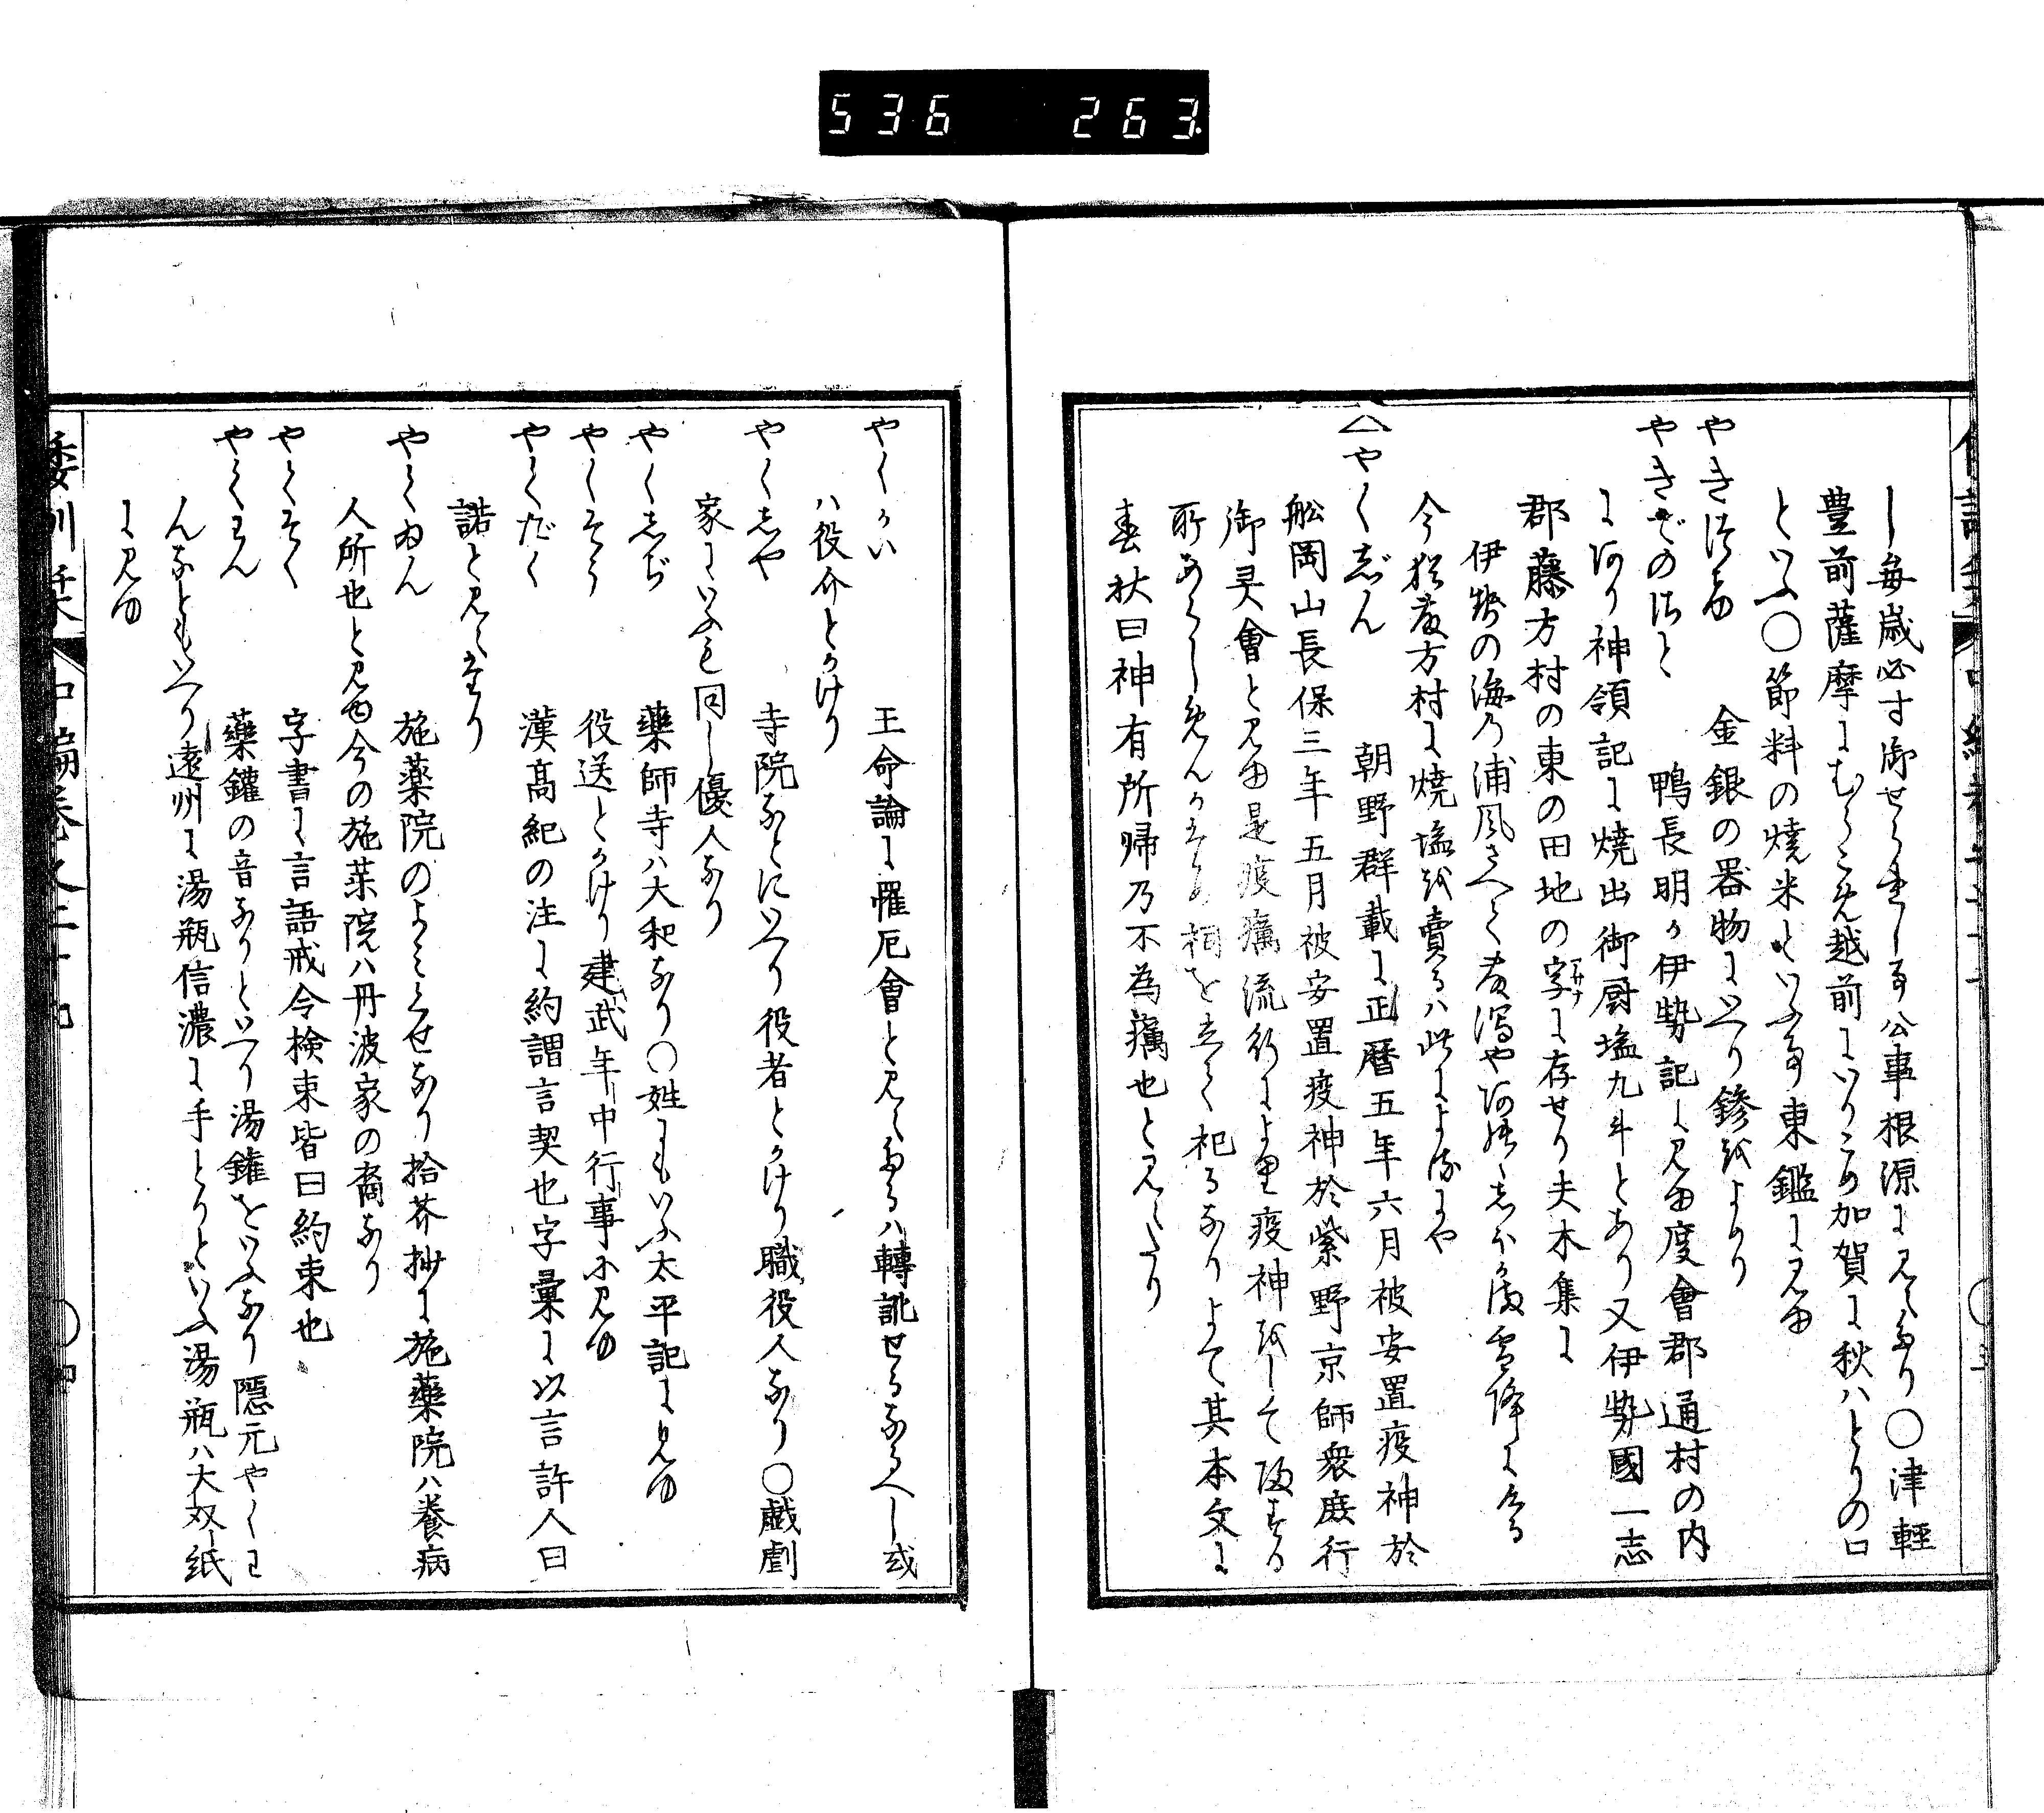 536 263
し毎歳必す御せらるゝ事公事根源に見えたり〇津輕
豊前薩摩にむらこめ越前にいりごめ加賀に秋ハとりの口
といふ〇節料の燒米といふ事東鑑に見ゆ
やきつけ 金銀の器物にいへり鏒をよめり
やきでのさと 鴨長明か伊勢記に見ゆ度會郡通村の内
にあり神領記に燒出御厨塩九斗とあり又伊勢國一志
郡藤方村の東の田地の字に存せり夫木集に
伊勢の海乃浦風さへて
今猶藤方村に燒塩を賣るハ此によるにや
やくじん 朝野群載に正暦五年六月被安置疫神於
舩岡山長保三年五月被安置疫神於紫野京師衆庶行
御灵會と見ゆ是疫癘流行により疫神をして
祠を立て祀るなりよて其本文に
春秋曰神有所帰乃不為癘也と見えたり
やくかい 王命論に罹厄會と見えたるハ轉訛せるなるへし或
ハ役介とかけり
やくしや 寺院なとにいへり役者とかけり職役人なり〇戯劇
家にいふも同し優人なり
やくしぢ 藥師寺ハ大和なり〇姓にもいふ太平記に見ゆ
やくそう 役送とかけり建武年中行事に見ゆ
やくだく 漢髙紀の注に約謂言契也字彙に以言許人曰
諾と見えたり
やくゐん 施薬院のよみくせなり拾芥抄に施藥院ハ養病
人所也と見ゆ今の施薬院ハ丹波家の裔なり
やくそく 字書に言語戒令検束皆曰約束也
やくわん 藥鑵の音なりといへり湯鑵をいふなり隠元やくわ
んなともいへり遠州に湯瓶信濃に手とりといふ湯瓶ハ大双紙
に見ゆ
倭訓栞 中編巻之二十九 〇四